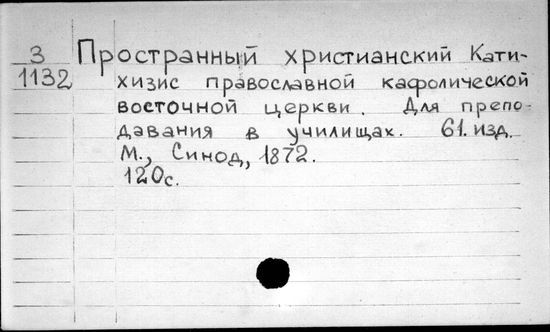 З Пространный христианский Кати-
1132 хизис православной кафолической
восточной церкви. Для препо-
давания в училищах. 61. изд.
М., Синод, 1872.
120с.